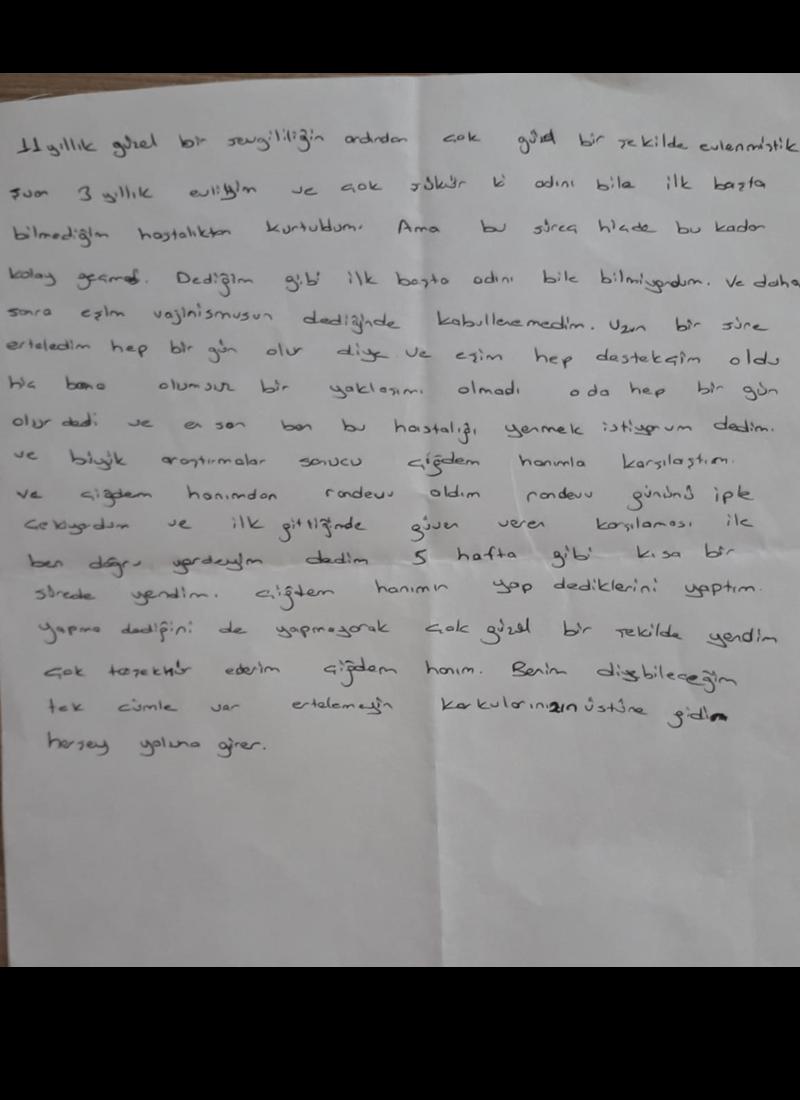 11 yıllık güzel bir sevgililiğin ardından çok güzel bir şekilde evlenmiştik
şuan 3 yıllık evliyim ve çok şükür ki adını bile ilk başta
bilmediğim hastalıktan kurtuldum. Ama bu süreç hiçde bu kadar
kolay geçmedi. Dediğim gibi ilk başta adını bile bilmiyordum. Ve daha
sonra eşim vajinismusun dediğinde kabullenemedim. Uzun bir süre
erteledim hep bir gün olur diye ve eşim hep destekçim oldu
hiç bana olumsuz bir yaklaşımı olmadı oda hep bir gün
olur dedi ve en son ben bu hastalığı yenmek istiyorum dedim.
ve büyük araştırmalar sonucu çiğdem hanımla karşılaştım.
ve çiğdem hanımdan randevu aldım randevu gününü iple
çekiyordum ve ilk gittiğimde güven veren karşılaması ile
ben doğru yerdeyim dedim 5 hafta gibi kısa bir
sürede yendim. çiğdem hanımın yap dediklerini yaptım.
yapma dediğini de yapmayarak çok güzel bir şekilde yendim
çok teşekkür ederim çiğdem hanım. Benim diyebileceğim
tek cümle var ertelemeyin korkularınızın üstüne gidin
herşey yoluna girer.